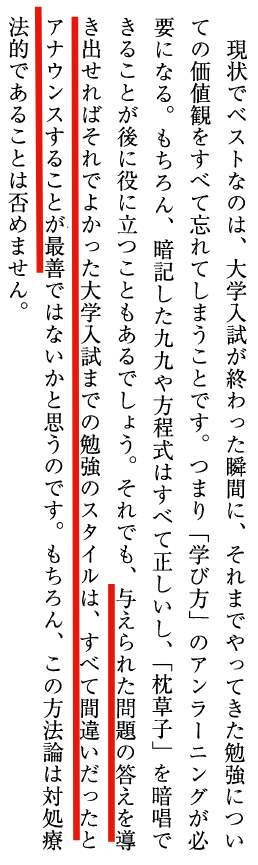 現状でベストなのは、大学入試が終わった瞬間に、それまでやってきた勉強につい
ての価値観をすべて忘れてしまうことです。つまり「学び方」のアンラーニングが必
要になる。もちろん、暗記した九九や方程式はすべて正しいし、「枕草子」を暗唱で
きることが後に役に立つこともあるでしょう。それでも、与えられた問題の答えを導
き出せればそれでよかった大学入試までの勉強のスタイルは、すべて間違いだったと
アナウンスすることが最善ではないかと思うのです。もちろん、この方法論は対処療
法的であることは否めません。